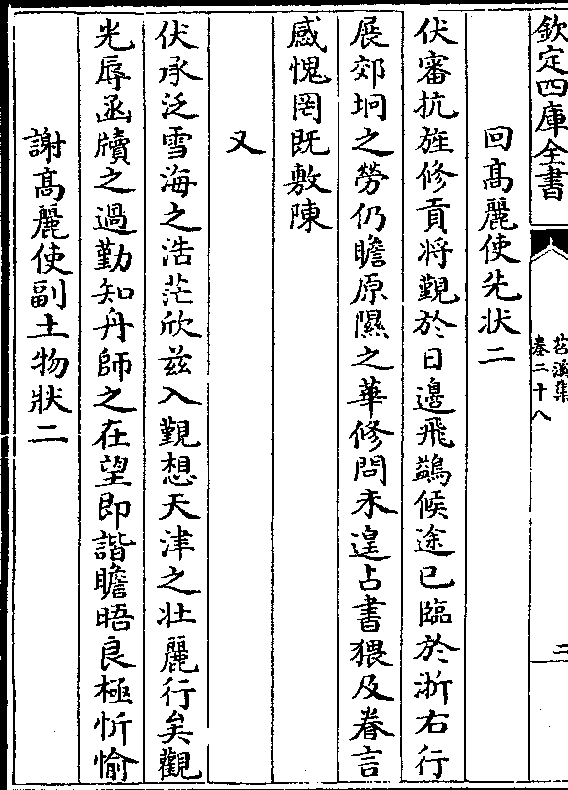 欽定四庫全書
苕溪集
卷二十八
三
回高麗使先状二
伏審抗旌修貢将覲於日邊飛鷁候途已臨於浙右行
展郊坰之勞仍瞻原隰之華修問未遑占書猥及眷言
感愧罔既敷陳
又
伏承泛雪海之浩茫欣兹入覲想天津之壮麗行矣觀
光辱函牘之過勤知舟師之在望即諧瞻晤良極忻愉
謝高麗使副土物狀二